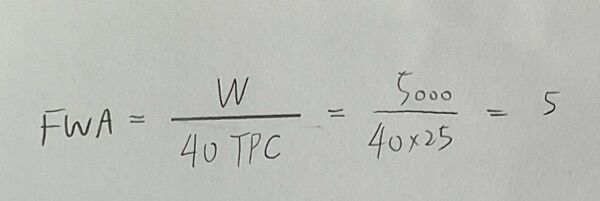 FWA = W / 40 TPC = 5000 / 40×25 = 5